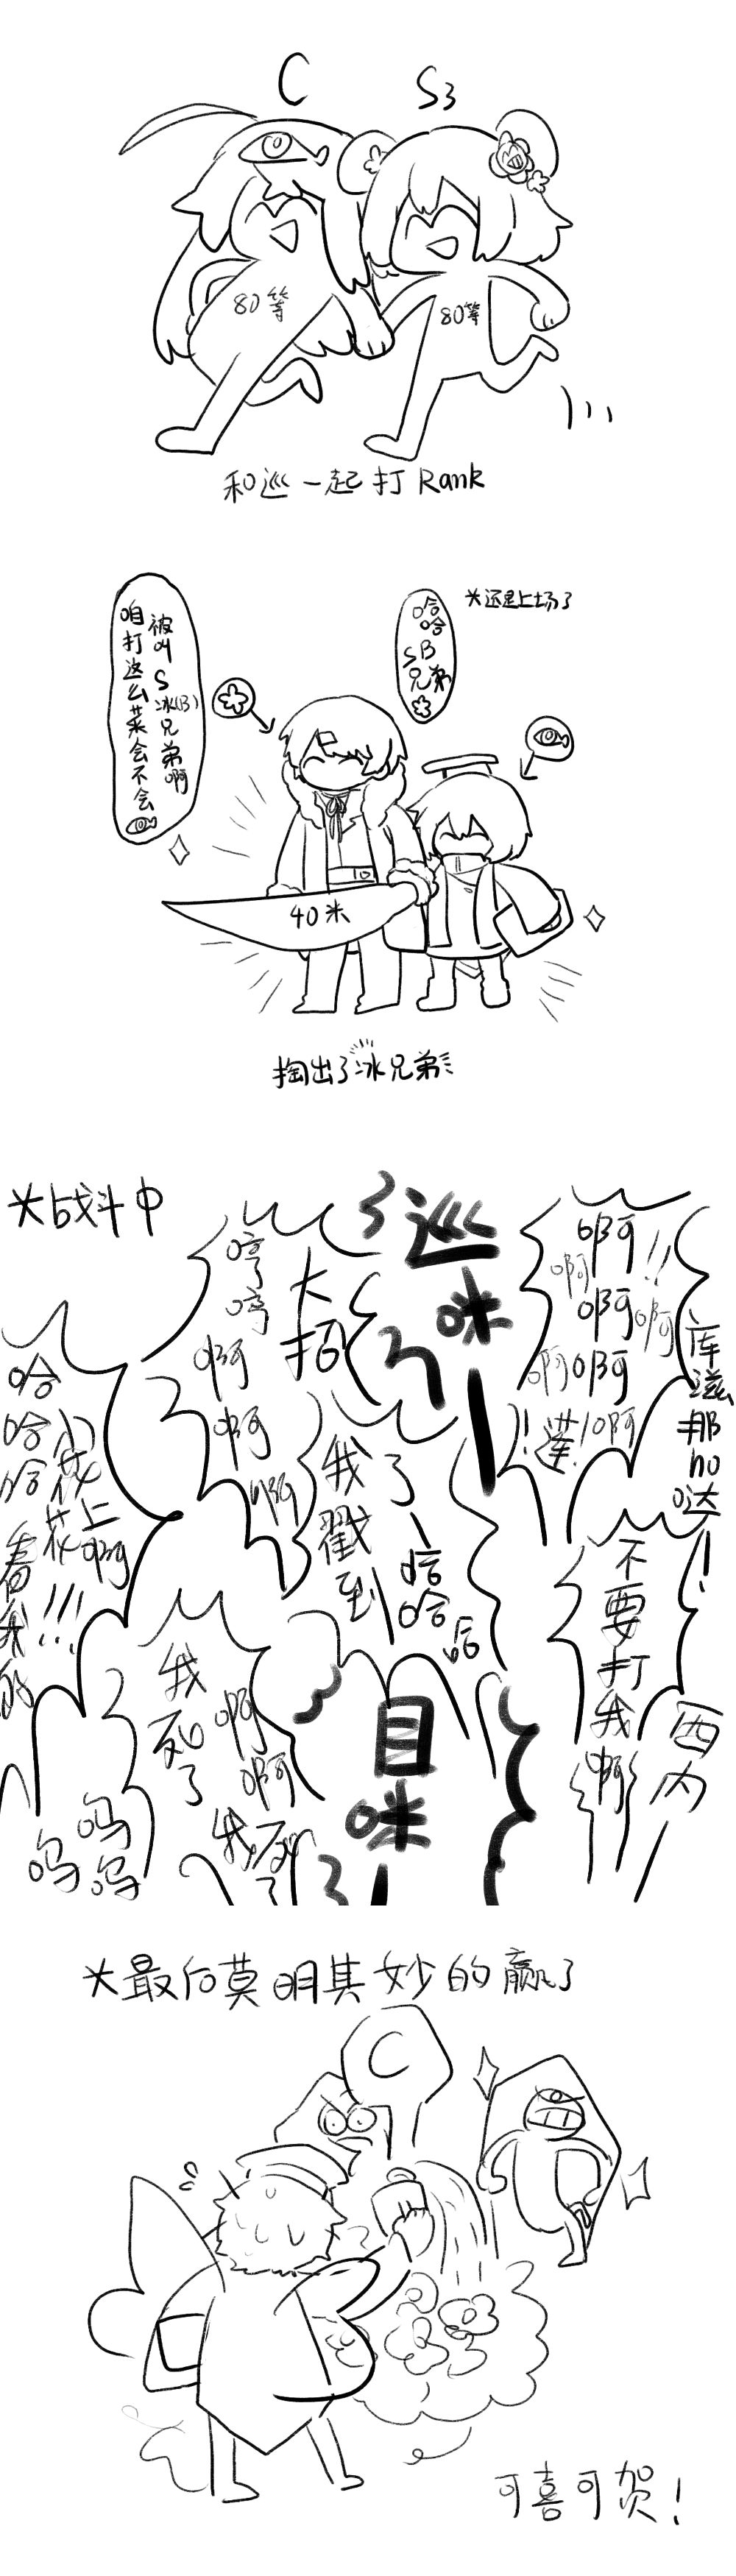 C
S3
80等
80等
和巡一起打Rank
*还是上场了
咱打这么菜会不会
被叫S冰(B)兄弟啊
哈哈
SB
兄弟
40米
掏出了冰兄弟
*战斗中
巡
咪
啊!!
啊
啊啊
啊啊
!莲!啊
库
那
no
哒
!
哼
哼
啊
啊
啊
大
招
哈
哈
哈
小花花
上啊
看我的
!!!
我
戳
到
了
哈
哈
哈
不要打我啊
西内
我死了
啊
啊
我死了
目
咪
呜
呜
呜
*最后莫明其妙的赢了
C
可喜可贺!